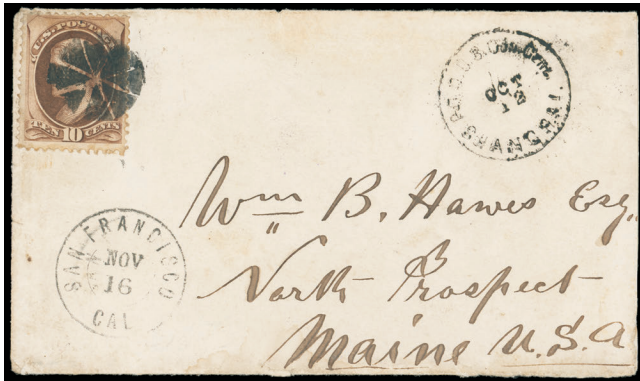 U.S. POSTAGE
TEN 10 CENTS
U.S. Con. Genl.
OCT
12
SHANGHAI
SAN FRANCISCO
NOV
16
CAL
Wm B. Hawes Esq
North Prospect
Maine U.S.A